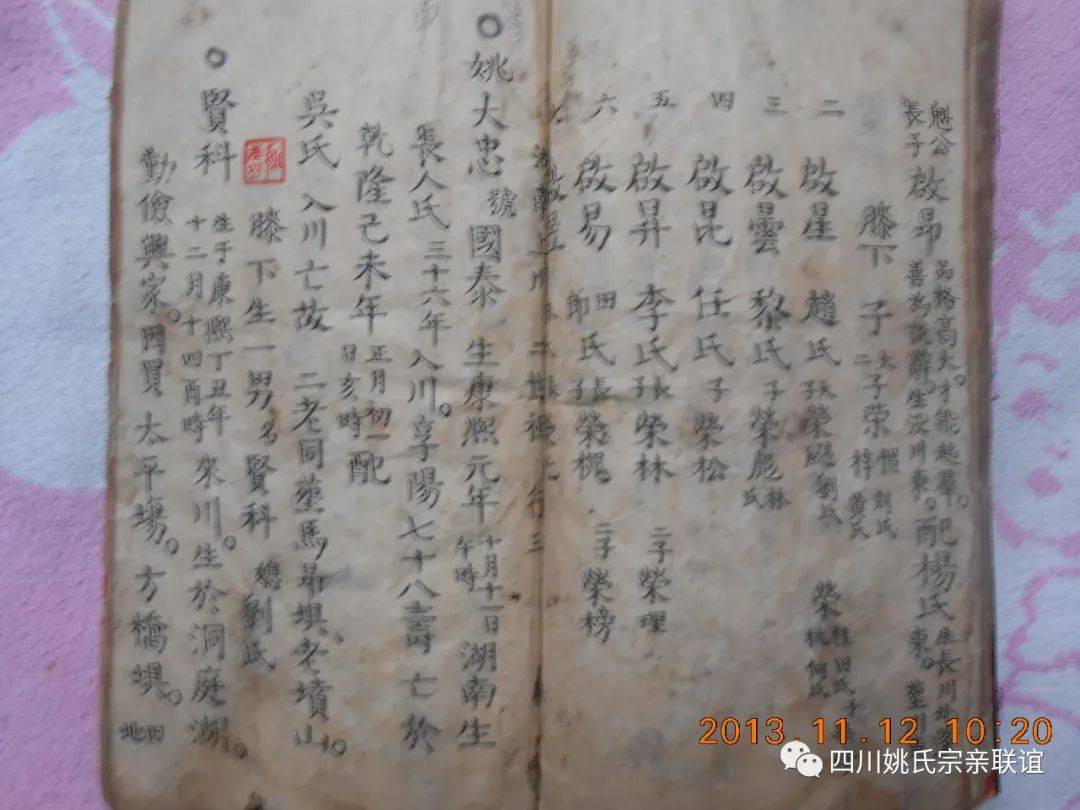 魁公長子 啟昂 品格高大。才能超群。善為說辭。生沒川東。配楊氏 生長川 東。
膝下子 大子荣 愷 刘氏 二子 梓 黄氏
二 啟星 趙氏 子長榮 劉氏 榮 桂田氏 子 桃何氏
三 啟曇 黎氏 子榮彪 林氏
四 啟昆 任氏 子榮松
五 啟昇 李氏 子長榮林 二子榮理
六 啟易 田氏 長子榮 二子榮榜
姚大忠 號國泰 生康熙元年 十月十一日午時 湖南生
長人氏 三十六年入川。享陽七十八壽 亡於
乾隆己未年 正月初一日亥時 配
吳氏 入川亡故 二老同塟馬吊埧老墳山。
膝下生一男名賢科 媳劉氏
賢科 生于康熙丁丑年十二月十四酉時 來川。生於洞庭湖。
勤儉興家。因買太平塲。方橋埧。田地
2013.11.12 10:20
四川姚氏宗亲联谊